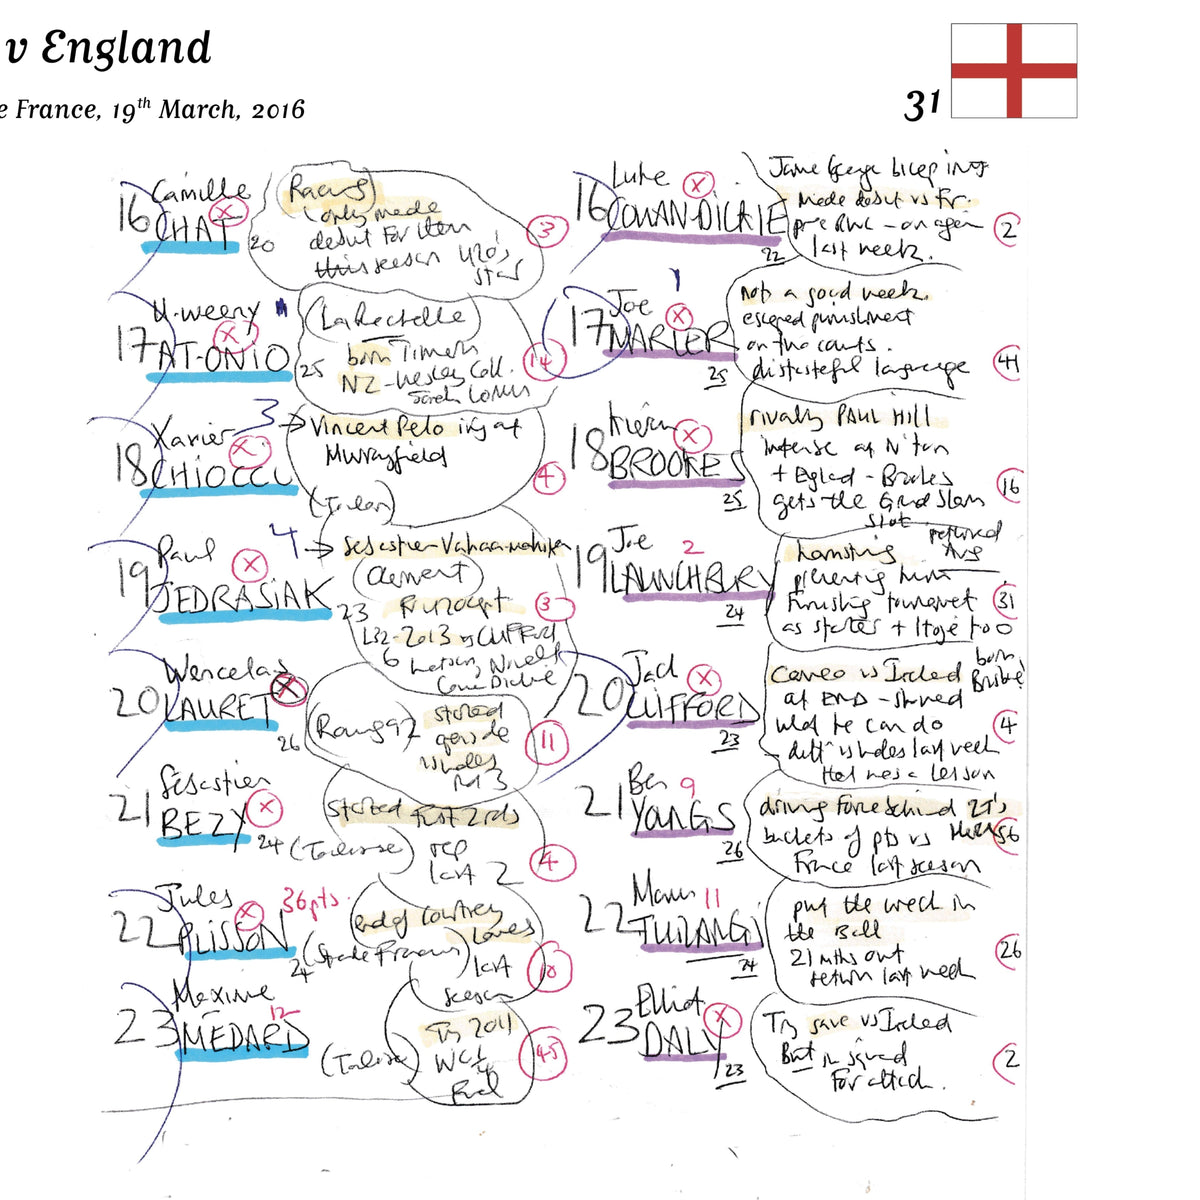 v England
e France, 19th March, 2016
31
16 Camille
CHAT
20
Racing
only made
debut for Item
this season U20's
star
3
17 Uweeny
ATONIO
25
La Rochelle
born Timaru
NZ - Wesley Coll.
14
18 Xavier 3
CHIOCCI
→ Vincent Pelo inj at
Murrayfield
(Toulon)
4
19 Paul 4
JEDRASIAK
23
→ Sebastien Vahaamahina
(Clermont)
L32-2013 vs Clifford
3
20 Wencelas
LAURET
26
(Racing 92)
started
Wales
M 3
11
21 Sebastien
BEZY
24 (Toulouse)
Started first 2 rds
rep
last 2
4
22 Jules 36pts.
PLISSON
24 (Stade Francais)
end of Courtney
Lawes
last
season
10
23 Maxime
12
MEDARD
(Toulouse)
Try 2011
WC 1/4
final
45
16 Luke
COWAN-DICKIE
22
Jamie George bicep inj
Made debut vs Fr.
pre RWC - on again
last week.
2
17 Joe 1
MARLER
25
Not a good week.
escaped punishment
on two counts.
distasteful language
44
18 Kieran
BROOKES
25
rivalry PAUL HILL
intense at N'ton
+ England - Brookes
gets the Grand Slam
slot
16
19 Joe 2
LAUNCHBURY
24
hamstring
returned
Avg
preventing him
finishing tournament
as starter + Itoje too
31
20 Jack
CLIFFORD
23
Cameo vs Ireland
born
Brisbane
at END - showed
what he can do
- diff vs Wales last week
that was a lesson
4
21 Ben 9
YOUNGS
26
driving force behind 2T's
buckets of pts vs
France last season
56
22 Manu 11
TUILANGI
24
put the week in
the Ball
21 mths out
return last week
26
23 Elliot
DALY
23
Try save vs Ireland
But in squad
for attack.
2